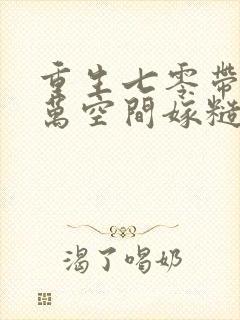 重生七零帶
萬空間嫁糙
渴了喝奶